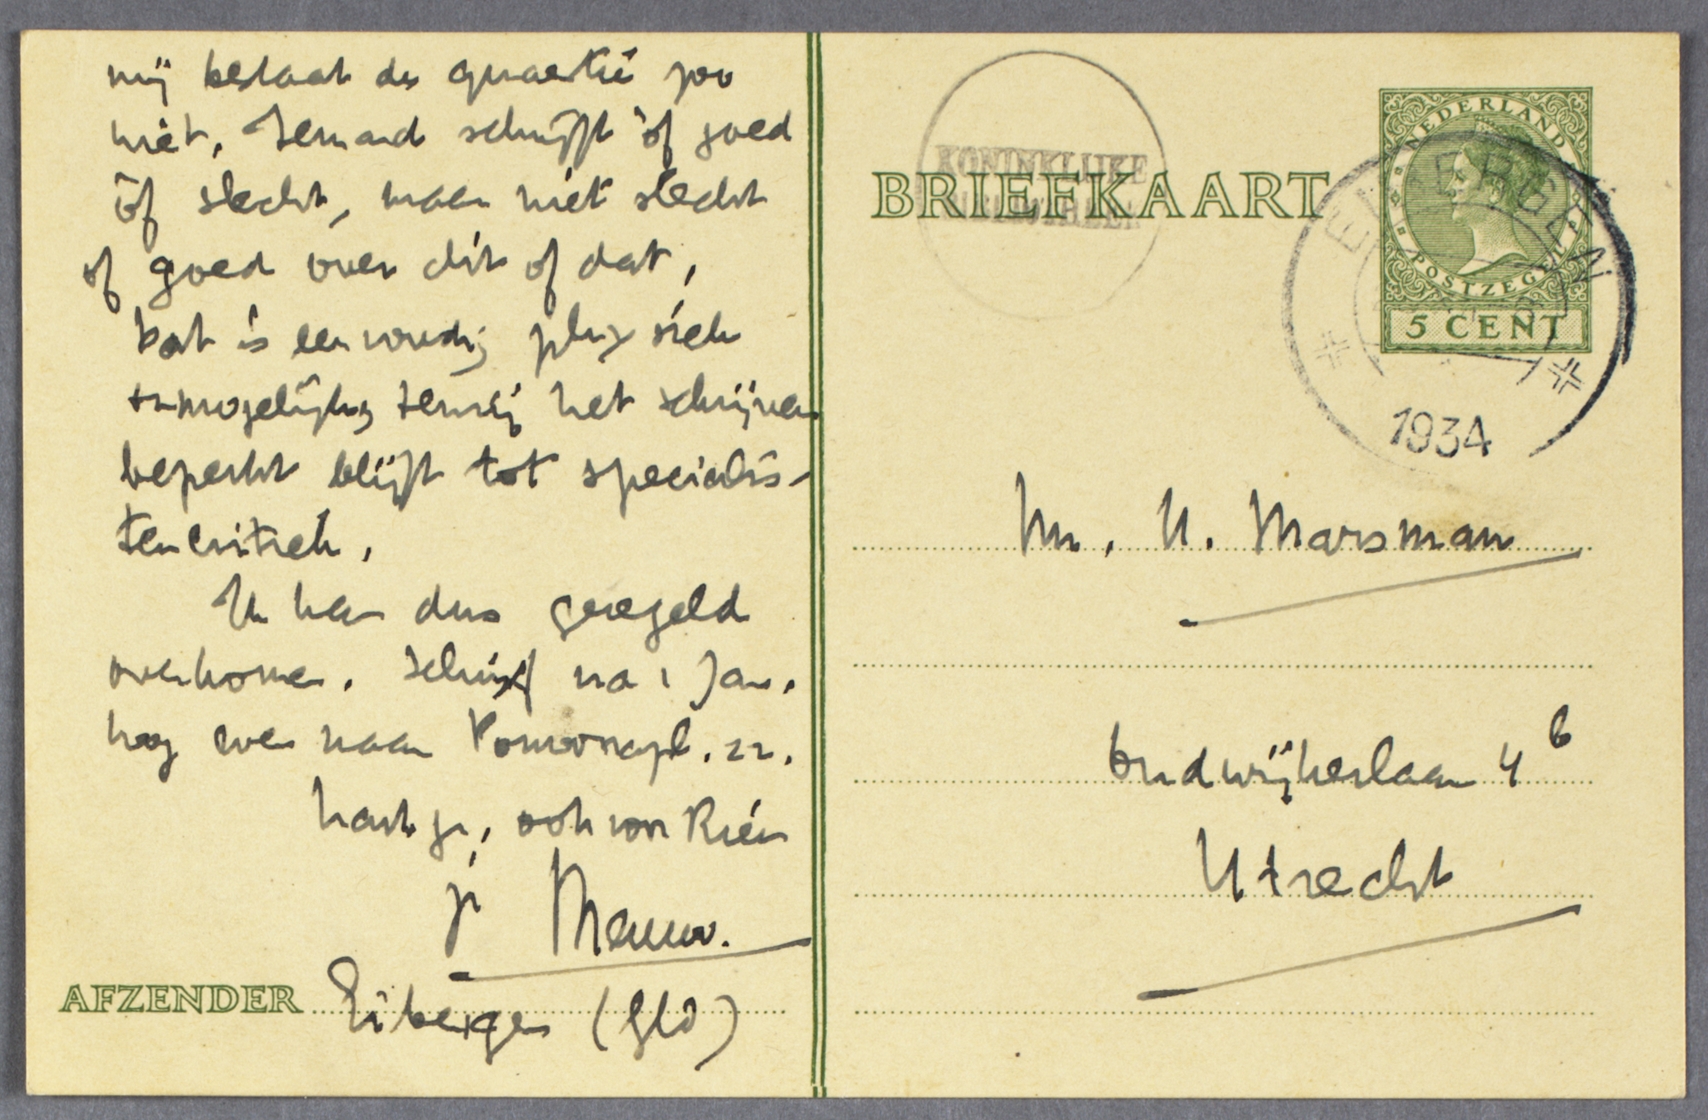 mij bestaat de quaestie zoo
niet. Iemand schrijft òf goed
òf slecht, maar niet slecht
of goed over dit of dat,
Dat is eenvoudig physiek
onmogelijk, tenzij het schrijven
beperkt blijft tot specialis-
tencritiek.
Je kan dus geregeld
overkomen. Schrijf na 1 Jan.
nog weer naar Pomonapl. 22.
hart gr, ook van Rien
je Menno.
AFZENDER Eibergen (Gld)
KONINKLIJKE
BIBLIOTHEEK
BRIEFKAART
NEDERLAND
POSTZEGEL
5 CENT
EIBERGEN
1934
Mr. H. Marsman
Oudwijkerlaan 4 b
Utrecht